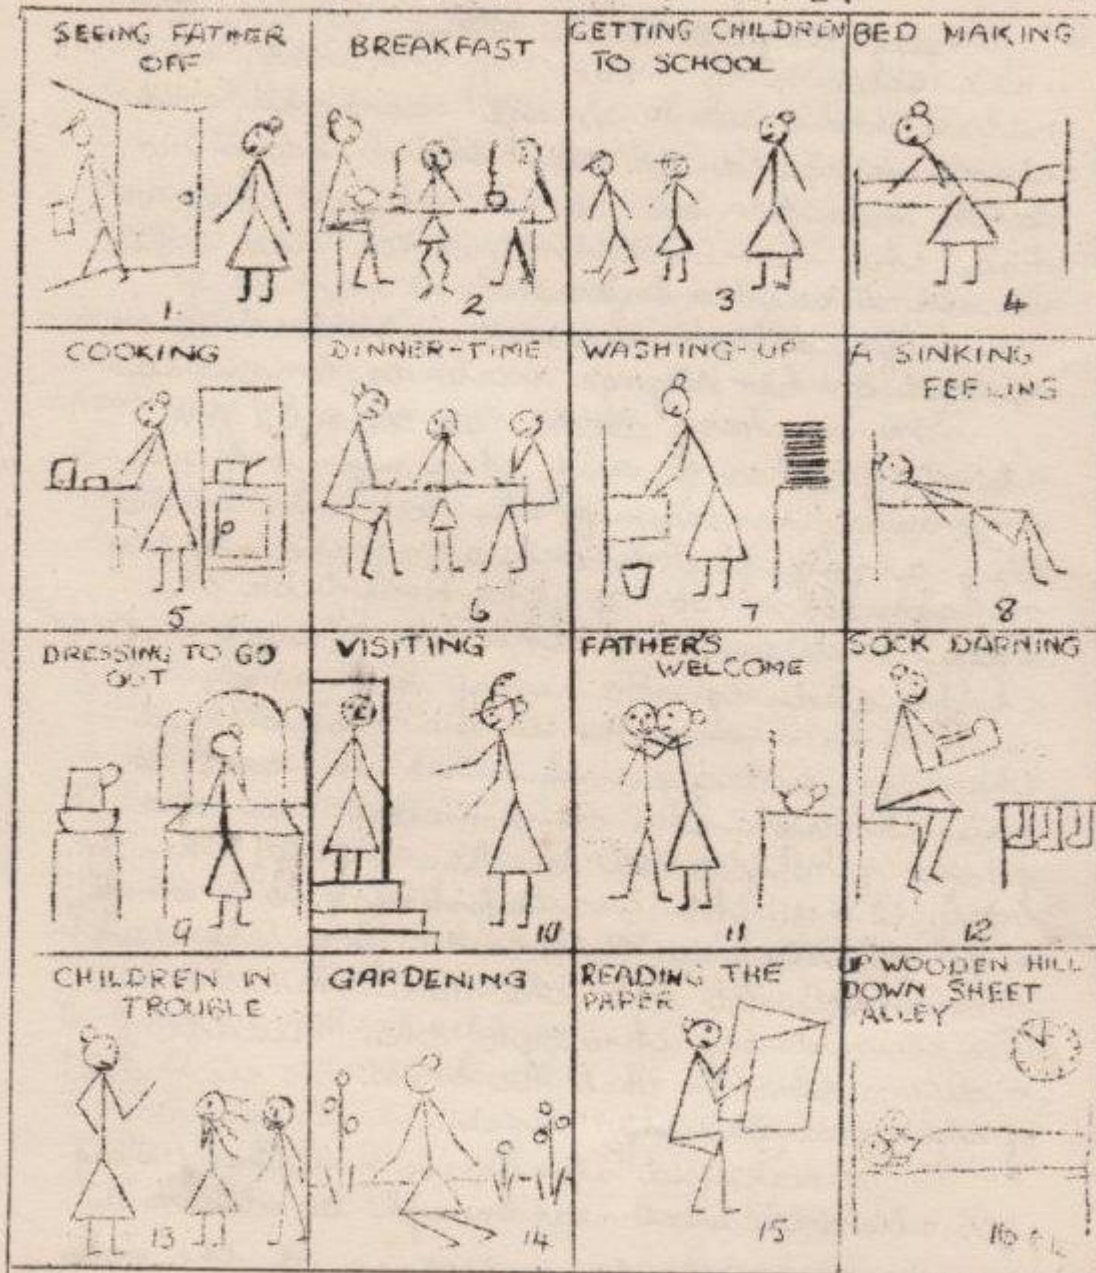 SEEING FATHER
OFF
1
BREAKFAST
2
GETTING CHILDREN
TO SCHOOL
3
BED MAKING
4
COOKING
5
DINNER-TIME
6
WASHING-UP
7
A SINKING
FEELING
8
DRESSING TO GO
OUT
9
VISITING
10
FATHER'S
WELCOME
11
SOCK DARNING
12
CHILDREN IN
TROUBLE
13
GARDENING
14
READING THE
PAPER
15
UP WOODEN HILL
DOWN SHEET
ALLEY
16